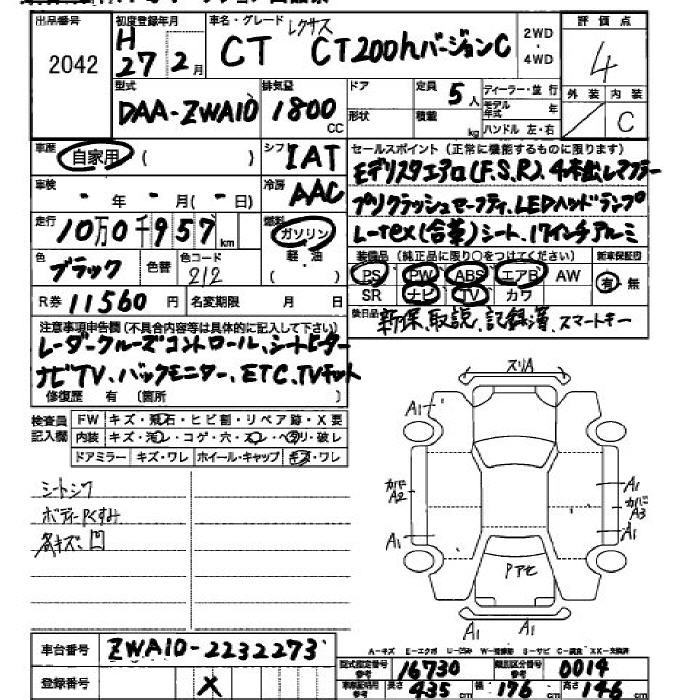 出品番号 初度登録年月 車名・グレード レクサス 2WD・4WD 評価点
2042 H27 2月 CT CT200hバージョンC 4
外装 内装
/ C
型式 排気量 ドア 定員 5人 ディーラー・並行
DAA-ZWA10 1800CC 形状 積載 kg モデル年式 年
ハンドル 左・右
車歴 自家用 ( ) シフト IAT セールスポイント (正常に機能するものに限ります)
モデリスタエアロ(F.S.R)、4本出しマフラー
車検 - 年 - 月(- 日) 冷房 AAC プリクラッシュセーフティ、LEDヘッドランプ
走行 10万0千957km 燃料 ガソリン L-tex(合革)シート、17インチアルミ
軽・油 装備品(純正品に限り○をつけてください) 新車保証書
色 ブラック 色替 色コード 212 ( ) PS PW ABS エアB AW 有・無
SR ナビ TV カワ
R券 11560円 名変期限 月 日 後日品 新保、取説、記録簿、スマートキー
注意事項申告欄(不具合内容等は具体的に記入して下さい)
レーダークルーズコントロール、シートヒーター
ナビTV、バックモニター、ETC、TVキット
修復歴 有 (箇所 )
検査員記入欄 FW キズ・飛石・ヒビ割・リペア跡・X要
内装 キズ・汚レ・コゲ・穴・スレ・ヘタリ・破レ
ドアミラー キズ・ワレ ホイール・キャップ キズ・ワレ
シートシワ
ボディーPくすみ
各キズ、凹
スリA
A1
カバにA2
A1
A1
カバにA3
A1
Pアセ
A1 A1
A-キズ E-エクボ U-凹み W-補修跡 S-サビ C-腐食 XX-交換済
車台番号 ZWA10-2232273
型式指定番号 参考 16730 類別区分番号 参考 0014
登録番号 X
車検証明用 参考 長さ 435cm 幅 176cm 高さ 146cm